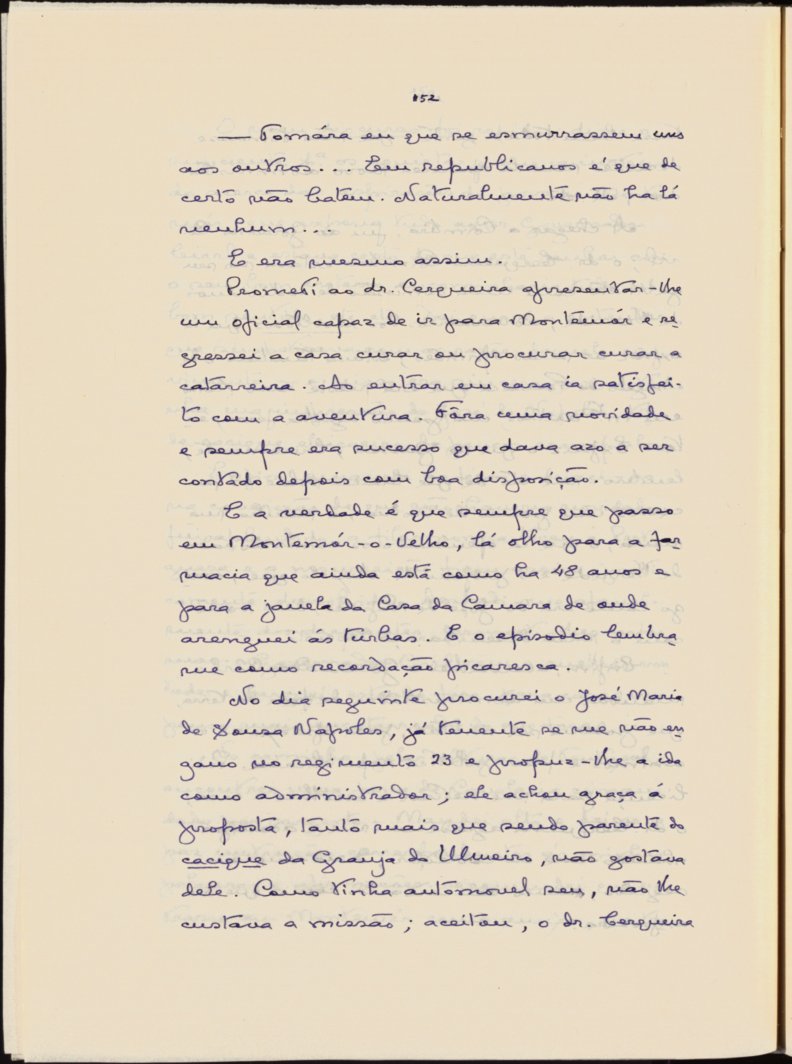 152
— Tomára eu que se esmurrassem uns
aos outros... Em republicanos é que de
certo não batem. Naturalmente não ha lá
nenhum...
E era mesmo assim.
Prometi ao dr. Cerqueira apresentar-lhe
um oficial capaz de ir para Montemór e re-
gressei a casa curar ou procurar curar a
catarreira. Ao entrar em casa ia satisfei-
to com a aventura. Fôra uma novidade
e sempre era sucesso que dava azo a ser
contado depois com boa disposição.
E a verdade é que sempre que passo
em Montemór-o-Velho, lá ólho para a far-
macia que ainda está como ha 48 anos e
para a janela da Casa da Camara de onde
arenguei ás turbas. E o episodio lembra-
me como recordação picaresca.
No dia seguinte procurei o José Maria
de Sousa Napoles, já tenente se me não en-
gano no regimento 23 e propuz-lhe a ida
como administrador; ele achou graça á
proposta, tanto mais que sendo parente do
cacique da Granja do Ulmeiro, não gostava
dele. Como tinha automovel seu, não lhe
custava a missão; aceitou, o dr. Cerqueira